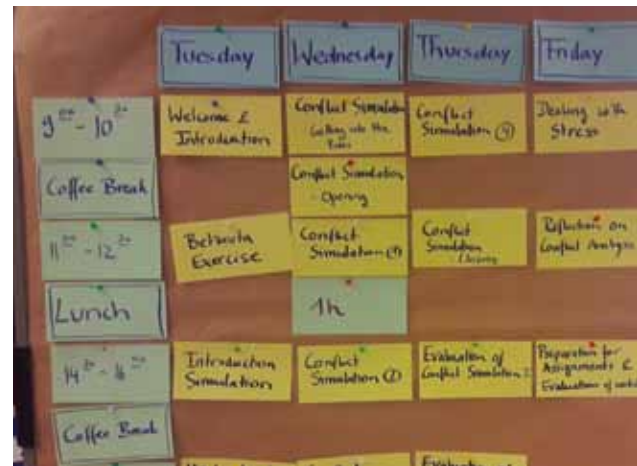 Tuesday
Wednesday
Thursday
Friday
9 00 - 10 30
Welcome &
Introduction
Conflict Simulation
Getting into the
Conflict
Simulation (4)
Dealing with
Stress
Coffee Break
Conflict Simulation
- Opening
11 00 - 12 30
Exercise
Conflict
Simulation (1)
Conflict
Simulation
Closing
Reflection on
Conflict Analysis
Lunch
1h
14
Introduction
Simulation
Conflict
Simulation (2)
Evaluation of
Conflict Simulation
Preparation for
Assignments &
Evaluation of
Coffee Break